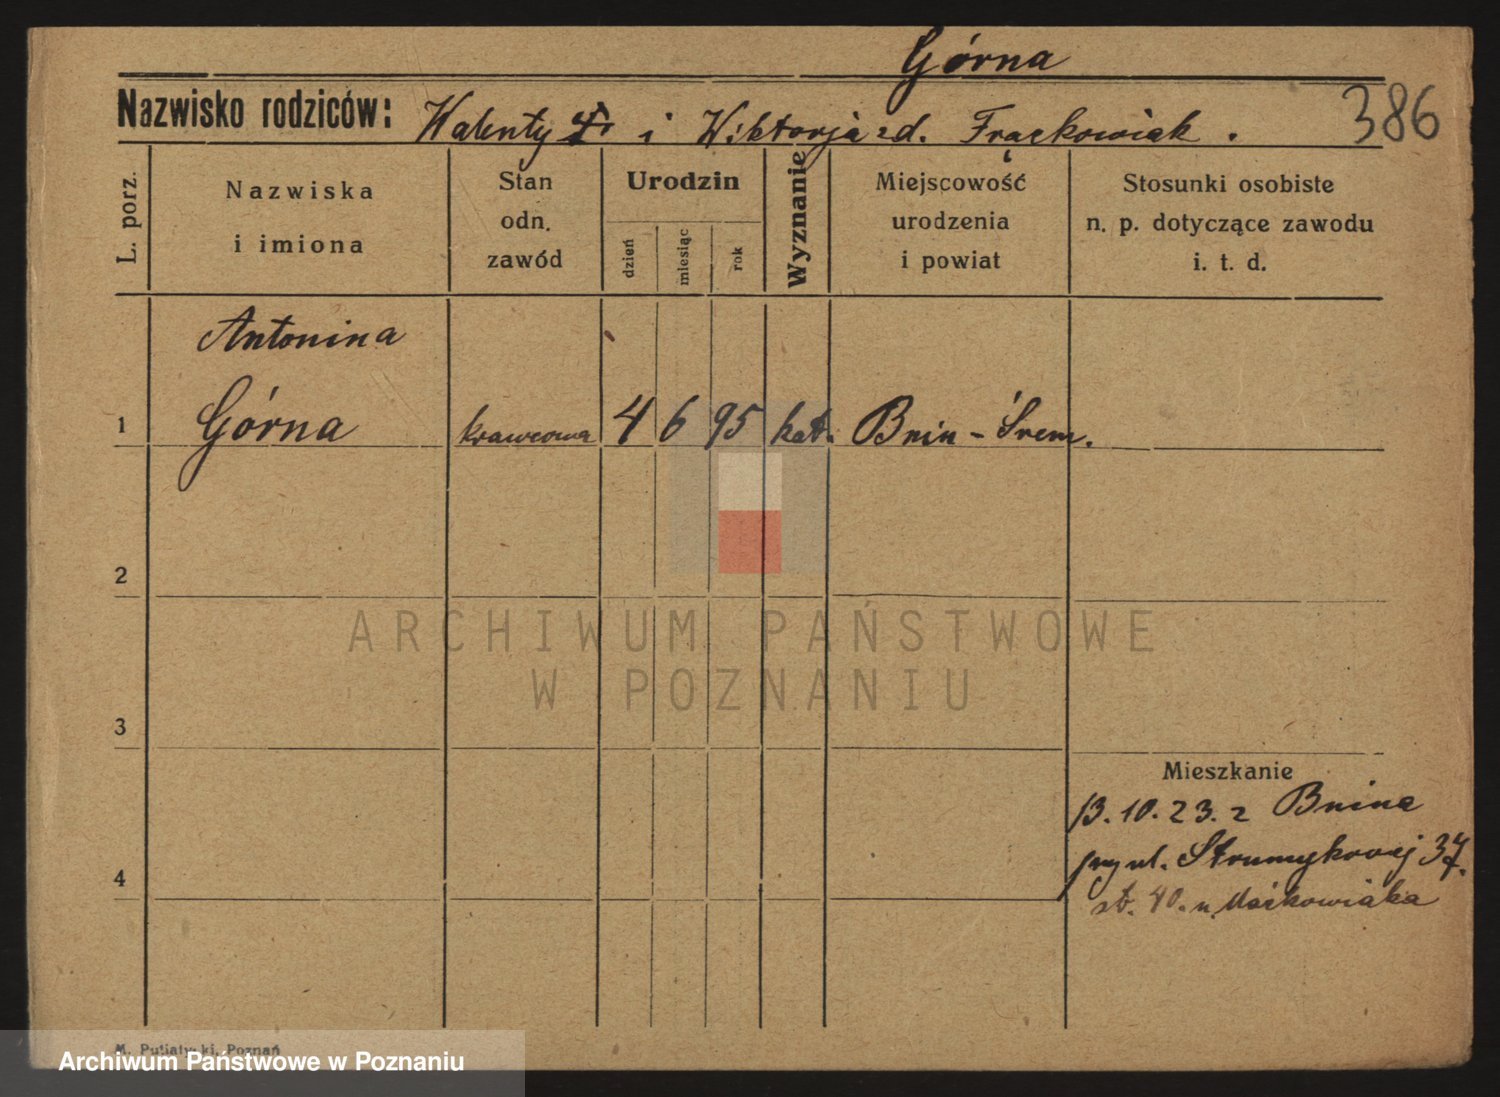 Górna
386
Nazwisko rodziców: Walenty i Wiktorja zd. Frąckowiak.
L. porz.
Nazwiska
i imiona
Stan
odn.
zawód
Urodzin
dzień
miesiąc
rok
Wyznanie
Miejscowość
urodzenia
i powiat
Stosunki osobiste
n. p. dotyczące zawodu
i. t. d.
Antonina
1 Górna krawcowa 4 6 95 kat. Bnin - Śrem.
2
ARCHIWUM PAŃSTWOWE
W POZNANIU
3
Mieszkanie
13.10.23. z Bnina
przy ul. Strumykowej 37.
4
st. 40. u. Maćkowiaka
M. Putiatycki, Poznań
Archiwum Państwowe w Poznaniu